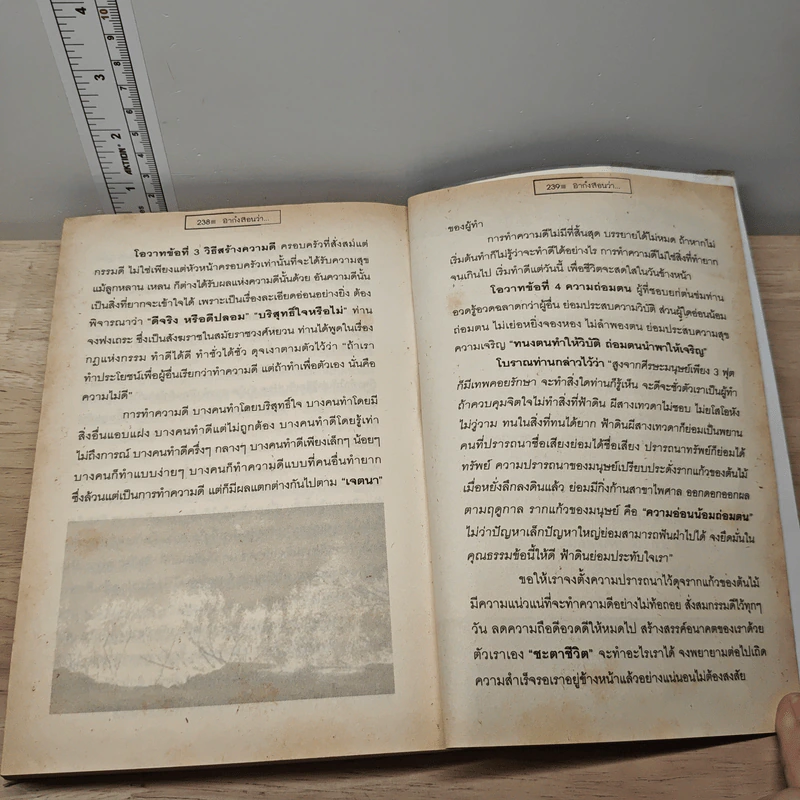 238 อาก๋งสอนว่า...
โอวาทข้อที่ 3 วิธีสร้างความดี ครอบครัวที่สั่งสมแต่
กรรมดี ไม่ใช่เพียงแต่หัวหน้าครอบครัวเท่านั้นที่จะได้รับความสุข
แม้ลูกหลาน เหลน ก็ต่างได้รับผลแห่งความดีนั้นด้วย อันความดีนั้น
เป็นสิ่งที่ยากจะเข้าใจได้ เพราะเป็นเรื่องละเอียดอ่อนอย่างยิ่ง ต้อง
พิจารณาว่า "ดีจริง หรือดีปลอม" "บริสุทธิ์ใจหรือไม่" ท่าน
จงฟงเถระ ซึ่งเป็นสังฆราชในสมัยราชวงศ์หยวน ท่านได้พูดในเรื่อง
กฎแห่งกรรม ทำดีได้ดี ทำชั่วได้ชั่ว ดุจเงาตามตัวไว้ว่า "ถ้าเรา
ทำประโยชน์เพื่อผู้อื่นเรียกว่าทำความดี แต่ถ้าทำเพื่อตัวเอง นั่นคือ
ความไม่ดี"
การทำความดี บางคนทำโดยบริสุทธิ์ใจ บางคนทำโดยมี
สิ่งอื่นแอบแฝง บางคนทำดีแต่ไม่ถูกต้อง บางคนทำดีโดยรู้เท่า
ไม่ถึงการณ์ บางคนทำดีครึ่งๆ กลางๆ บางคนทำดีเพียงเล็กๆ น้อยๆ
บางคนก็ทำแบบง่ายๆ บางคนก็ทำความดีแบบที่คนอื่นทำยาก
ซึ่งล้วนแต่เป็นการทำความดี แต่ก็มีผลแตกต่างกันไปตาม "เจตนา"
239 อาก๋งสอนว่า...
ของผู้ทำ
การทำความดีไม่มีที่สิ้นสุด บรรยายได้ไม่หมด ถ้าหากไม่
เริ่มต้นทำก็ไม่รู้ว่าจะทำดีได้อย่างไร การทำความดีไม่ใช่สิ่งที่ทำยาก
จนเกินไป เริ่มทำดีแต่วันนี้ เพื่อชีวิตจะสดใสในวันข้างหน้า
โอวาทข้อที่ 4 ความถ่อมตน ผู้ที่ชอบยกตนข่มท่าน
อวดรู้อวดฉลาดกว่าผู้อื่น ย่อมประสบความวิบัติ ส่วนผู้ใดอ่อนน้อม
ถ่อมตน ไม่เย่อหยิ่งจองหอง ไม่ลำพองตน ย่อมประสบความสุข
ความเจริญ "ทนงตนทำให้วิบัติ ถ่อมตนนำพาให้เจริญ"
โบราณท่านกล่าวไว้ว่า "สูงจากศีรษะมนุษย์เพียง 3 ฟุต
ก็มีเทพคอยรักษา จะทำสิ่งใดท่านก็รู้เห็น จะดีจะชั่วตัวเราเป็นผู้ทำ
ถ้าควบคุมจิตใจไม่ทำสิ่งที่ฟ้าดิน ผีสางเทวดาไม่ชอบ ไม่ยโสโอหัง
ไม่วู่วาม ทนในสิ่งที่ทนได้ยาก ฟ้าดินผีสางเทวดาก็ย่อมเป็นพยาน
คนที่ปรารถนาชื่อเสียงย่อมได้ชื่อเสียง ปรารถนาทรัพย์ก็ย่อมได้
ทรัพย์ ความปรารถนาของมนุษย์เปรียบประดั่งรากแก้วของต้นไม้
เมื่อหยั่งลึกลงดินแล้ว ย่อมมีกิ่งก้านสาขาไพศาล ออกดอกออกผล
ตามฤดูกาล รากแก้วของมนุษย์ คือ "ความอ่อนน้อมถ่อมตน"
ไม่ว่าปัญหาเล็กปัญหาใหญ่ย่อมสามารถฟันฝ่าไปได้ จงยึดมั่นใน
คุณธรรมข้อนี้ให้ดี ฟ้าดินย่อมประทับใจเรา"
ขอให้เราจงตั้งความปรารถนาไว้ดุจรากแก้วของต้นไม้
มีความแน่วแน่ที่จะทำความดีอย่างไม่ท้อถอย สั่งสมกรรมดีไว้ทุกๆ
วัน ลดความถือดีอวดดีให้หมดไป สร้างสรรค์อนาคตของเราด้วย
ตัวเราเอง "ชะตาชีวิต" จะทำอะไรเราได้ จงพยายามต่อไปเถิด
ความสำเร็จรอเราอยู่ข้างหน้าแล้วอย่างแน่นอนไม่ต้องสงสัย